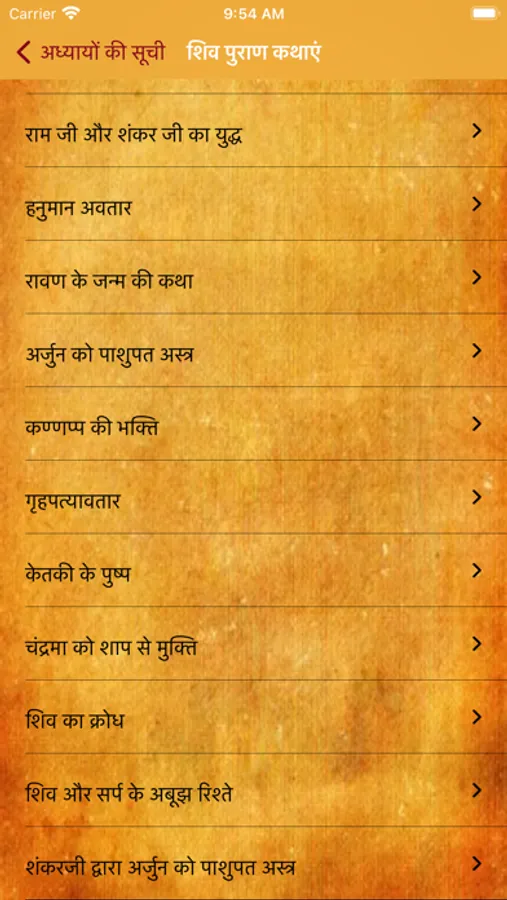 Carrier 9:54 AM
अध्यायों की सूची शिव पुराण कथाएं
राम जी और शंकर जी का युद्ध
हनुमान अवतार
रावण के जन्म की कथा
अर्जुन को पाशुपत अस्त्र
कण्णप्प की भक्ति
गृहपत्यावतार
केतकी के पुष्प
चंद्रमा को शाप से मुक्ति
शिव का क्रोध
शिव और सर्प के अबूझ रिश्ते
शंकरजी द्वारा अर्जुन को पाशुपत अस्त्र